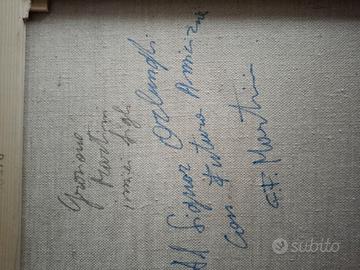 Al Signor Orlandi
Con Futura Amicizia
G.F. Martini
Martini
i miei figli
subito